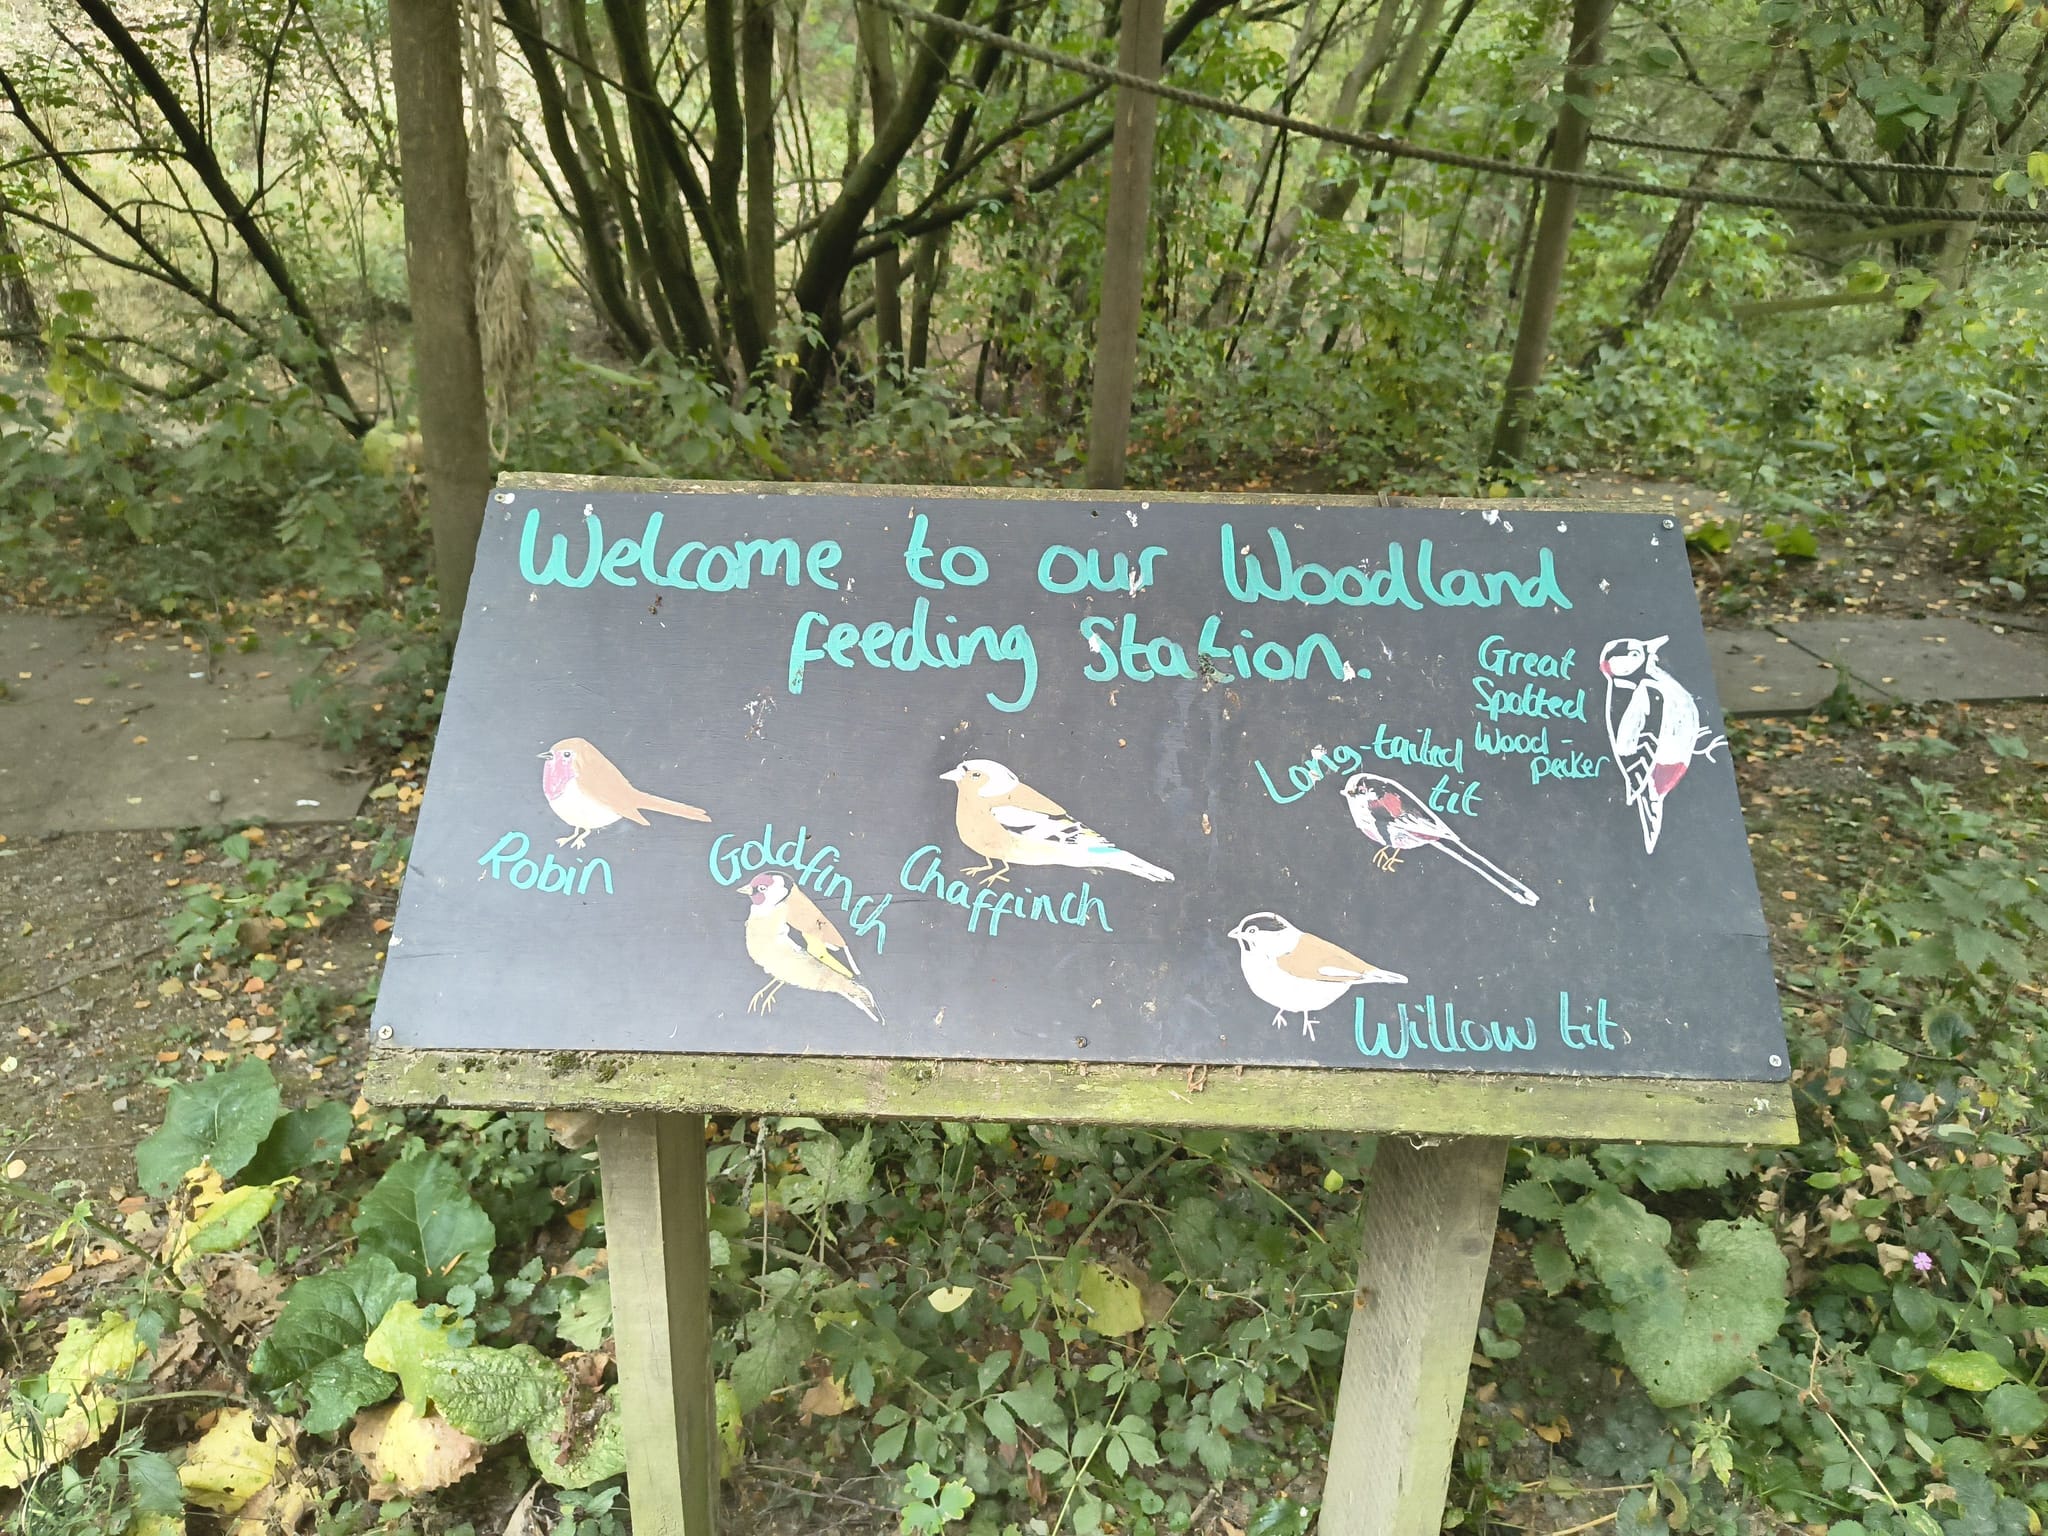 Welcome to our Woodland
feeding Station.
Great
Spotted
Wood-
pecker
Long-tailed
tit
Robin
Goldfinch
Chaffinch
Willow tit